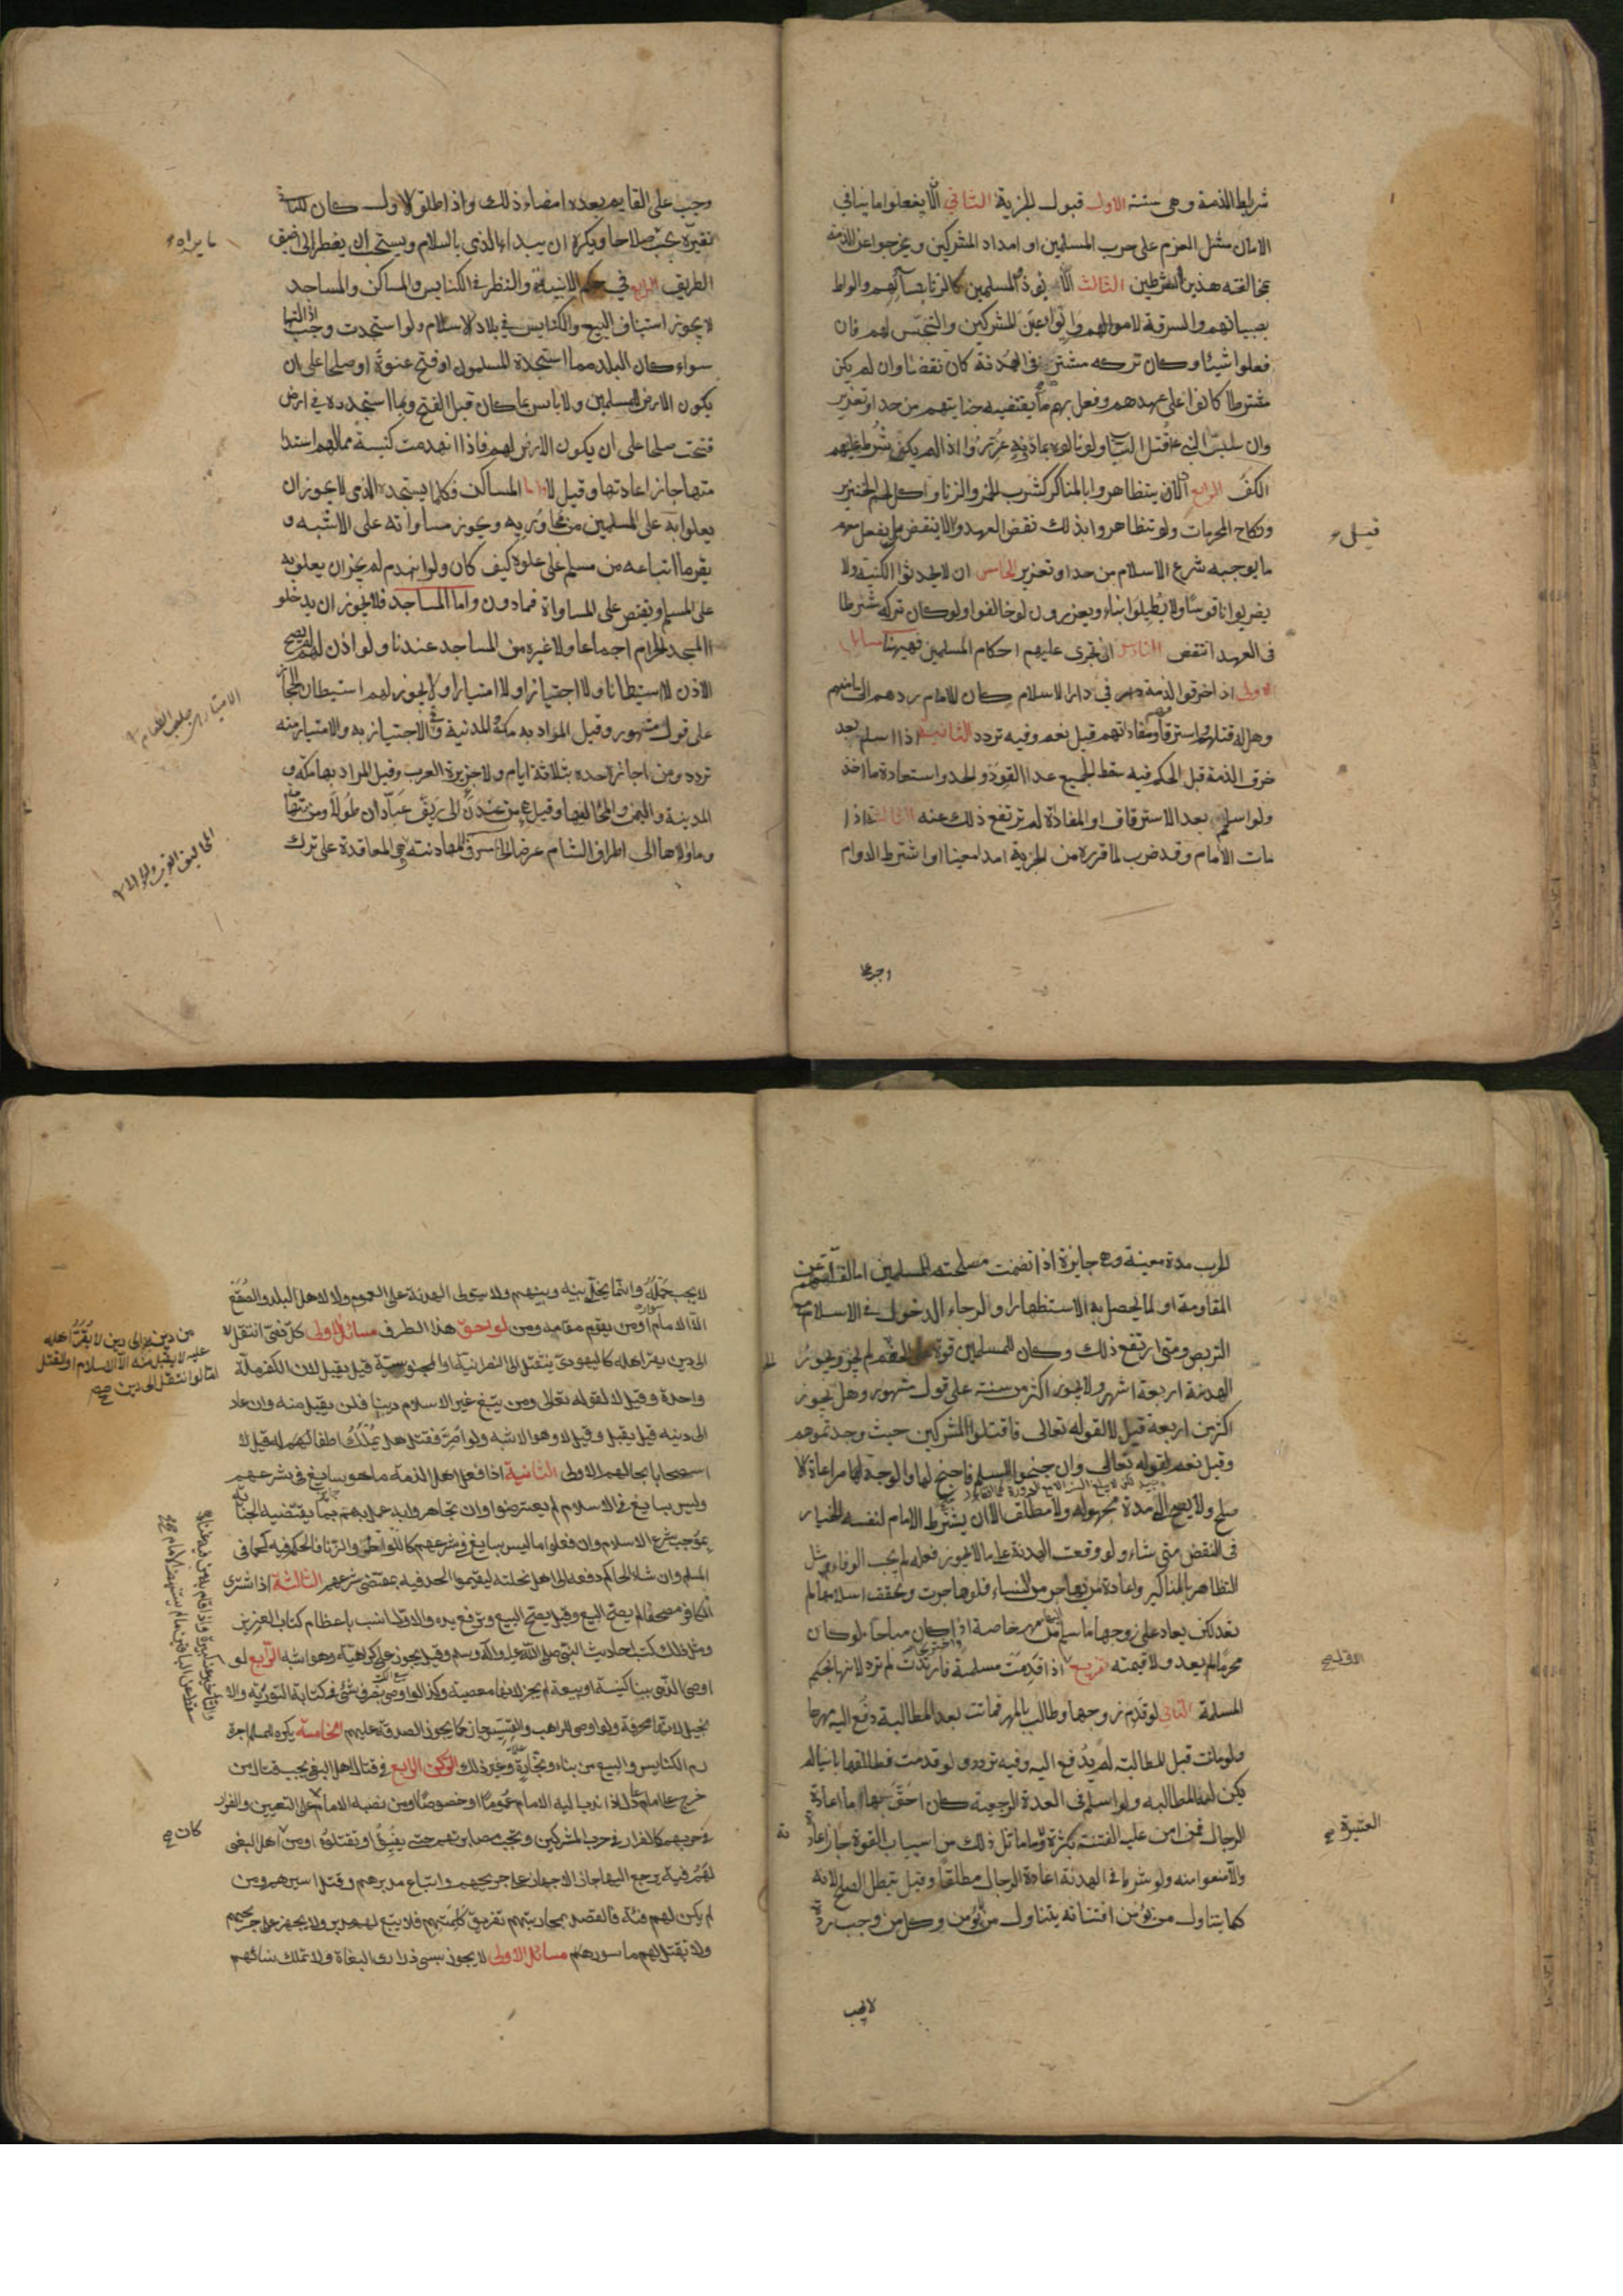 شرايط الذمة وهى ستة الاول قبول الجزية الثاني الّا يفعلوا ما ينافي
الامان مثل العزم على حرب المسلمين او امداد المشركين ويخرجوا عن الذمة
بمخالفته هذين الشرطين الثالث الّا يوذوا المسلمين كالزنا بنسائهم واللواط
بصبيانهم والسرقة لاموالهم وايواء عين المشركين والتجسّس لهم فان
فعلوا شيئا وكان تركه مشترطا في الهدنة كان نقضا وان لم يكن
مشترطا كانوا على عهدهم وفعل بهم ما يقتضيه جنايتهم من حد او تعزير
وان سبّوا النبى قتل الساب ولو نالوه بما دونه عزّروا اذا لم يكن شرط عليهم
الكفّ الرابع الّا ان يتظاهروا بالمناكر كشرب الخمر والزنا واكل لحم الخنزير
ونكاح المحرمات ولو تظاهروا بذلك نقض العهد وقيل لا ينقض بل يفعل بهم
ما يوجبه شرع الاسلام من حد او تعزير الخامس ان لا يحدثوا الكنيسة ولا
يضربوا ناقوسًا ولا يُطيلوا بناء ويعزرون لو خالفوا ولو كان تركه شرطا
في العهد انتقض السادس ان تجرى عليهم احكام المسلمين فهيهنا مسايل
الاولى اذا خرقوا الذمة في دار الاسلام كان للامام ردهم الى مامنهم
وهل له قتلهم واسترقاقهم ومفاداتهم قيل نعم وفيه تردد الثانية اذا اسلم بعد
خرق الذمة قبل الحكم فيه سقط الجميع عدا القود والحد واستعادة ما اخذ
ولو اسلم بعد الاسترقاق او المفاداة لم يرتفع ذلك عنه الثالثة اذا
مات الامام وقد ضرب لما قرره من الجزية امدا معينا او اشترط الدوام
وجب على القايم بعده امضاء ذلك واذا اطلق الاول كان للثاني
تغيره بحسب صلاحا ويكره ان يبداء الذمى بالسلام ويستحب ان يضطر الى اضيق
ما يراه
الطريق الرابع في حكم الابنية والنظر في الكنايس والمساكن والمساجد
لا يجوز استيناف البيع والكنايس في بلاد الاسلام ولو استجدت وجب ازالتها
سواء كان البلد مما استجده المسلمون او فتح عنوة او صلحا على ان
يكون الارض للمسلمين ولا باس بما كان قبل الفتح وبما استجددوه في ارض
فتحت صلحا على ان يكون الارض لهم فاذا انهدمت كنيسة مما لهم استدامتها
جاز اعادتها وقيل لا واما المساكن فكلما يستجده الذمى لا يجوز ان
يعلوا به على المسلمين من مجاوريه ويجوز مساواته على الاشبه و
يقر ما ابتاعه من مسلم على علوه كيف كان ولو انهدم لم يجز ان يعلو به
على المسلم ويقتصر على المساواة فما دون واما المساجد فلا يجوز ان يدخلو
المسجد الحرام اجماعا ولا غيره من المساجد عندنا ولو اذن لهم لم يصح
الاذن لا استيطانا ولا اجتيازا ولا امتيارا ولا يجوز لهم استيطان الحجاز
على قول مشهور وقيل المراد به مكة والمدينة وفي الاجتياز به والامتيار منه
الامتيار جلب الطعام
تردد ومن اجازه حده بثلاثة ايام ولا جزيرة العرب وقيل المراد بها مكة و
المدينة واليمن ومخاليفها وقيل هى من عدن الى ريف عبّادان طولًا ومن تهامة
وما والاها الى اطراف الشام عرضا الخامس في المهادنة وهى المعاقدة على ترك
الحرب مدة معينة وهى جايزة اذا تضمنت مصلحة للمسلمين اما لقلتهم عن
المقاومة او لما يحصل به الاستظهار او لرجاء الدخول في الاسلام مع
التربص ومتى ارتفع ذلك وكان للمسلمين قوة على الخصم لم يجز ويجوز
الهدنة اربعة اشهر ولا يجوز اكثر من سنة على قول مشهور وهل يجوز
اكثر من اربعة قيل لا لقوله تعالى فاقتلوا المشركين حيث وجدتموهم
وقيل نعم لقوله تعالى وان جنحوا للسلم فاجنح لها والوجه مراعاة الا
صلح ولا يصح الى مدة مجهولة ولا مطلقا الا ان يشترط الامام لنفسه الخيار
في النقض متى شاء ولو وقعت الهدنة على ما لا يجوز فعله لم يجب الوفاء مثل
التظاهر بالمناكير واعادة من يهاجر من النساء فلو هاجرت وتحقق اسلامها لم
تعد لكن يعاد على زوجها ما سلم من مهر خاصة اذا كان مباحا ولو كان
محرما لم يعد ولا قيمته تفريع اذا قدمت مسلمة فارتدت لم ترد لانها بحكم
المسلمة الثاني لو قدم زوجها وطالب بالمهر فماتت بعد المطالبة دفع اليه مهرها
ولو ماتت قبل المطالبة لم يُدفع اليه وفيه تردد ولو قدمت فطلقها باينا لم
يكن له المطالبة ولو اسلم في العدة الرجعية كان احق بها اما اعادة
الرجال فمن امن عليه الفتنة بكثرة العشيرة وما ماثل ذلك من اسباب القوة جاز اعادته
والا منعوا منه ولو شرط في الهدنة اعادة الرجال مطلقا وقيل يبطل الصلح لانه
كما يتناول من يؤمن افتتانه يتناول من لا يؤمن وكل من وجب ردّه
لا يجب
لا يجب حمله وانما يخلى بينه وبينهم ولا يتولى الهدنة على العموم ولا لاهل البلد والصقع
الا الامام او من يقوم مقامه ومن لواحق هذا الطرف مسائل الاولى كل ذمّى انتقل
الى دين يقر اهله كاليهودى ينتقل الى النصرانية او المجوسية قيل يقبل لان الكفر ملة
واحدة وقيل لا لقوله تعالى ومن يبتغ غير الاسلام دينا فلن يقبل منه وان عاد
الى دينه قيل يقبل وقيل لا وهو الاشبه ولو اصرّ فقتل هل يملك اطفاله قيل لا
استصحابا بحالهم الاولى الثانية اذا فعل اهل الذمة ما هو سايغ في شرعهم
وليس بسايغ في الاسلام لم يعترضوا وان تجاهروا به عمل بهم بما يقتضيه الجناية
بموجب شرع الاسلام وان فعلوا ما ليس بسايغ في شرعهم كاللواط والزنا فالحكم فيه كما في
المسلم وان شاء الحاكم دفعه الى اهل نحلته ليقيموا الحد فيه بمقتضى شرعهم الثالثة اذا اشترى
الكافر مصحفا لم يصح البيع وقيل يصح البيع ويرفع يده والاول انسب باعظام كتاب العزيز
ومثل ذلك كتب احاديث النبى صلى الله عليه واله وسلم وقيل يجوز على كراهية وهو اشبه الرابع لو
اوصى الذمى ببناء كنيسة او بيعة لم يجز لانها معصية وكذا لو اوصى بصرف شئ في كتابة التورية والا
نجيل لانها محرفة ولو اوصى للراهب والقسيس جاز كما يجوز الصدقة عليهم الخامسة يكره للمسلم اجرة
رم الكنايس والبيع من بناء ونجارة وغير ذلك الركن الرابع في قتال اهل البغى يجب قتال من
خرج على امام عادل اذا ندب اليه الامام عموما او خصوصا او من نصبه الامام على التعيين والفرار
في حربهم كالفرار في حرب المشركين وتجب مصابرتهم حتى يفيؤا او يقتلوا ومن كان من اهل البغى
لهم فية يرجع اليها جاز الاجهاز على جريحهم واتباع مدبرهم وقتل اسيرهم ومن
لم يكن لهم فئة فالقصد بمحاربتهم تفريق كلمتهم فلا يتبع لهم مدبر ولا يجهز على جريحهم
ولا يقتل لهم ماسورهم مسائل الاولى لا يجوز سبى ذرارى البغاة ولا تملك نسائهم